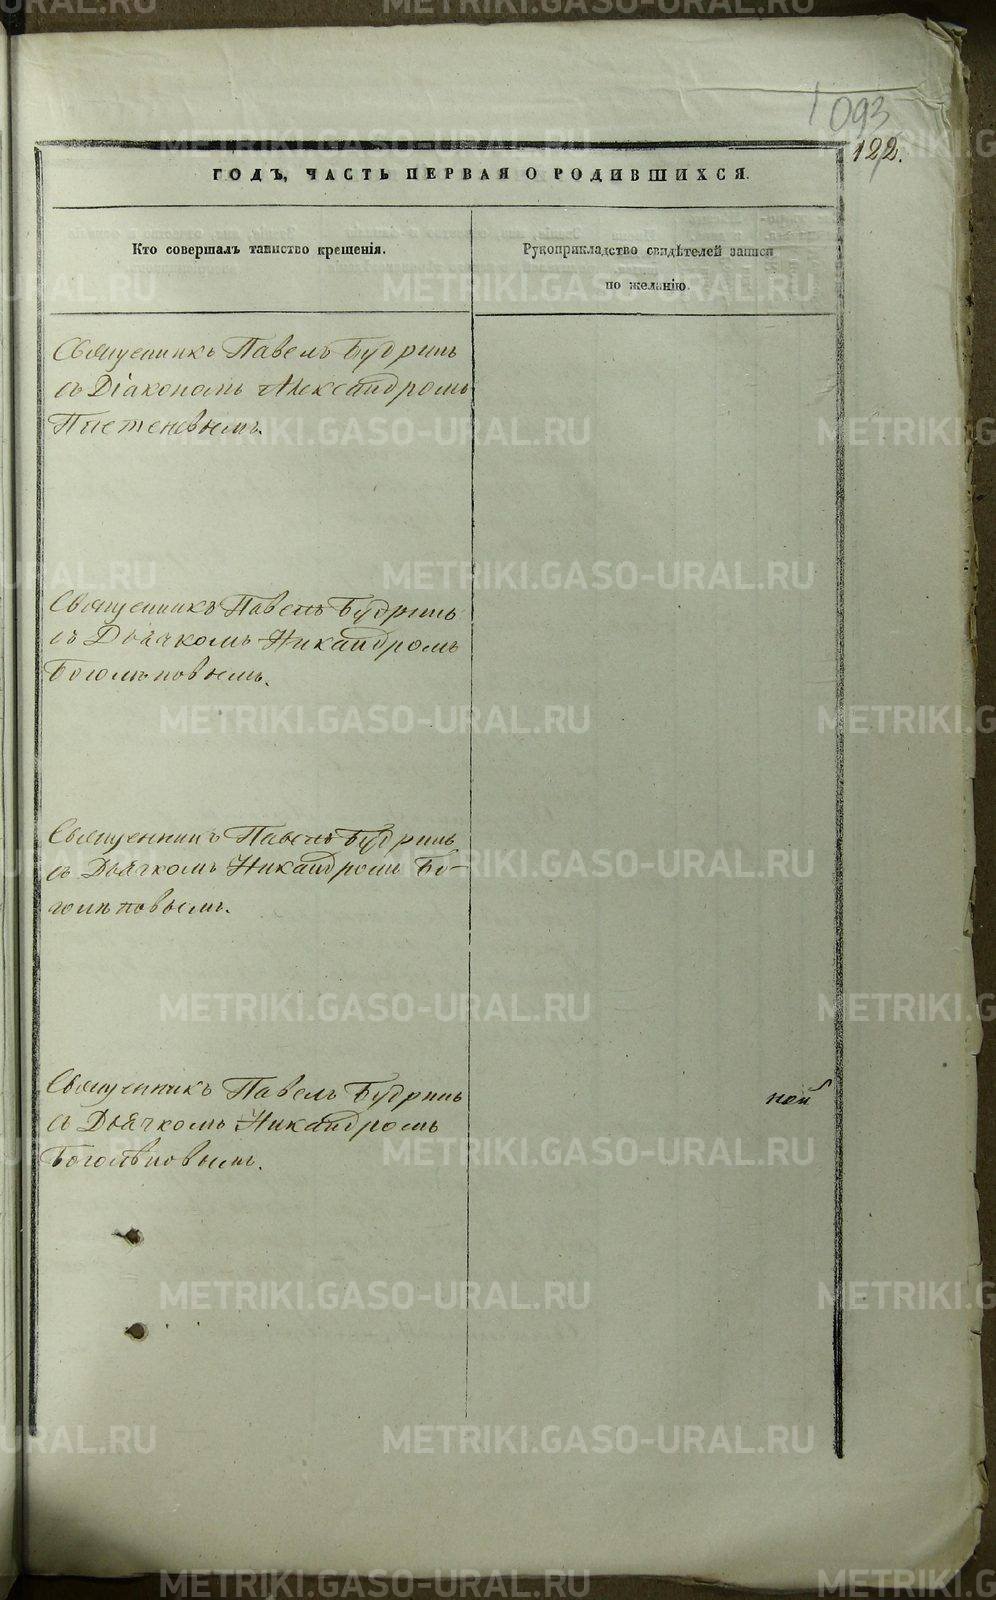 1093
122.
ГОДЪ, ЧАСТЬ ПЕРВАЯ О РОДИВШИХСЯ.
Кто совершалъ таинство крещенія.
Рукоприкладство свидѣтелей записи
по желанію.
Священникъ Павелъ Будринъ
съ Діакономъ Александромъ
Священникъ Павелъ Будринъ
съ Дьячкомъ Никандромъ
Боголѣповымъ.
Священникъ Павелъ Будринъ
съ Дьячкомъ Никандромъ Бо-
голѣповымъ.
Священникъ Павелъ Будринъ
съ Дьячкомъ Никандромъ
Боголѣповымъ.
ной
METRIKI.GASO-URAL.RU